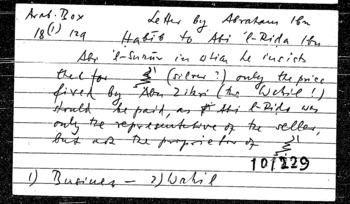 Arab. Box Letter by Abraham Ibn
18 (1) 129 Habīb to Abi 'l-Rida Ibn
Abi 'l-Surūr in which he insists
that for (silver?) only the price
fixed by Abu Zikri (the Wakil!)
should be paid, as Abi 'l-Rida was
only the representative of the seller,
but not the proprietor of
101229
1) Business — 2) Wakil